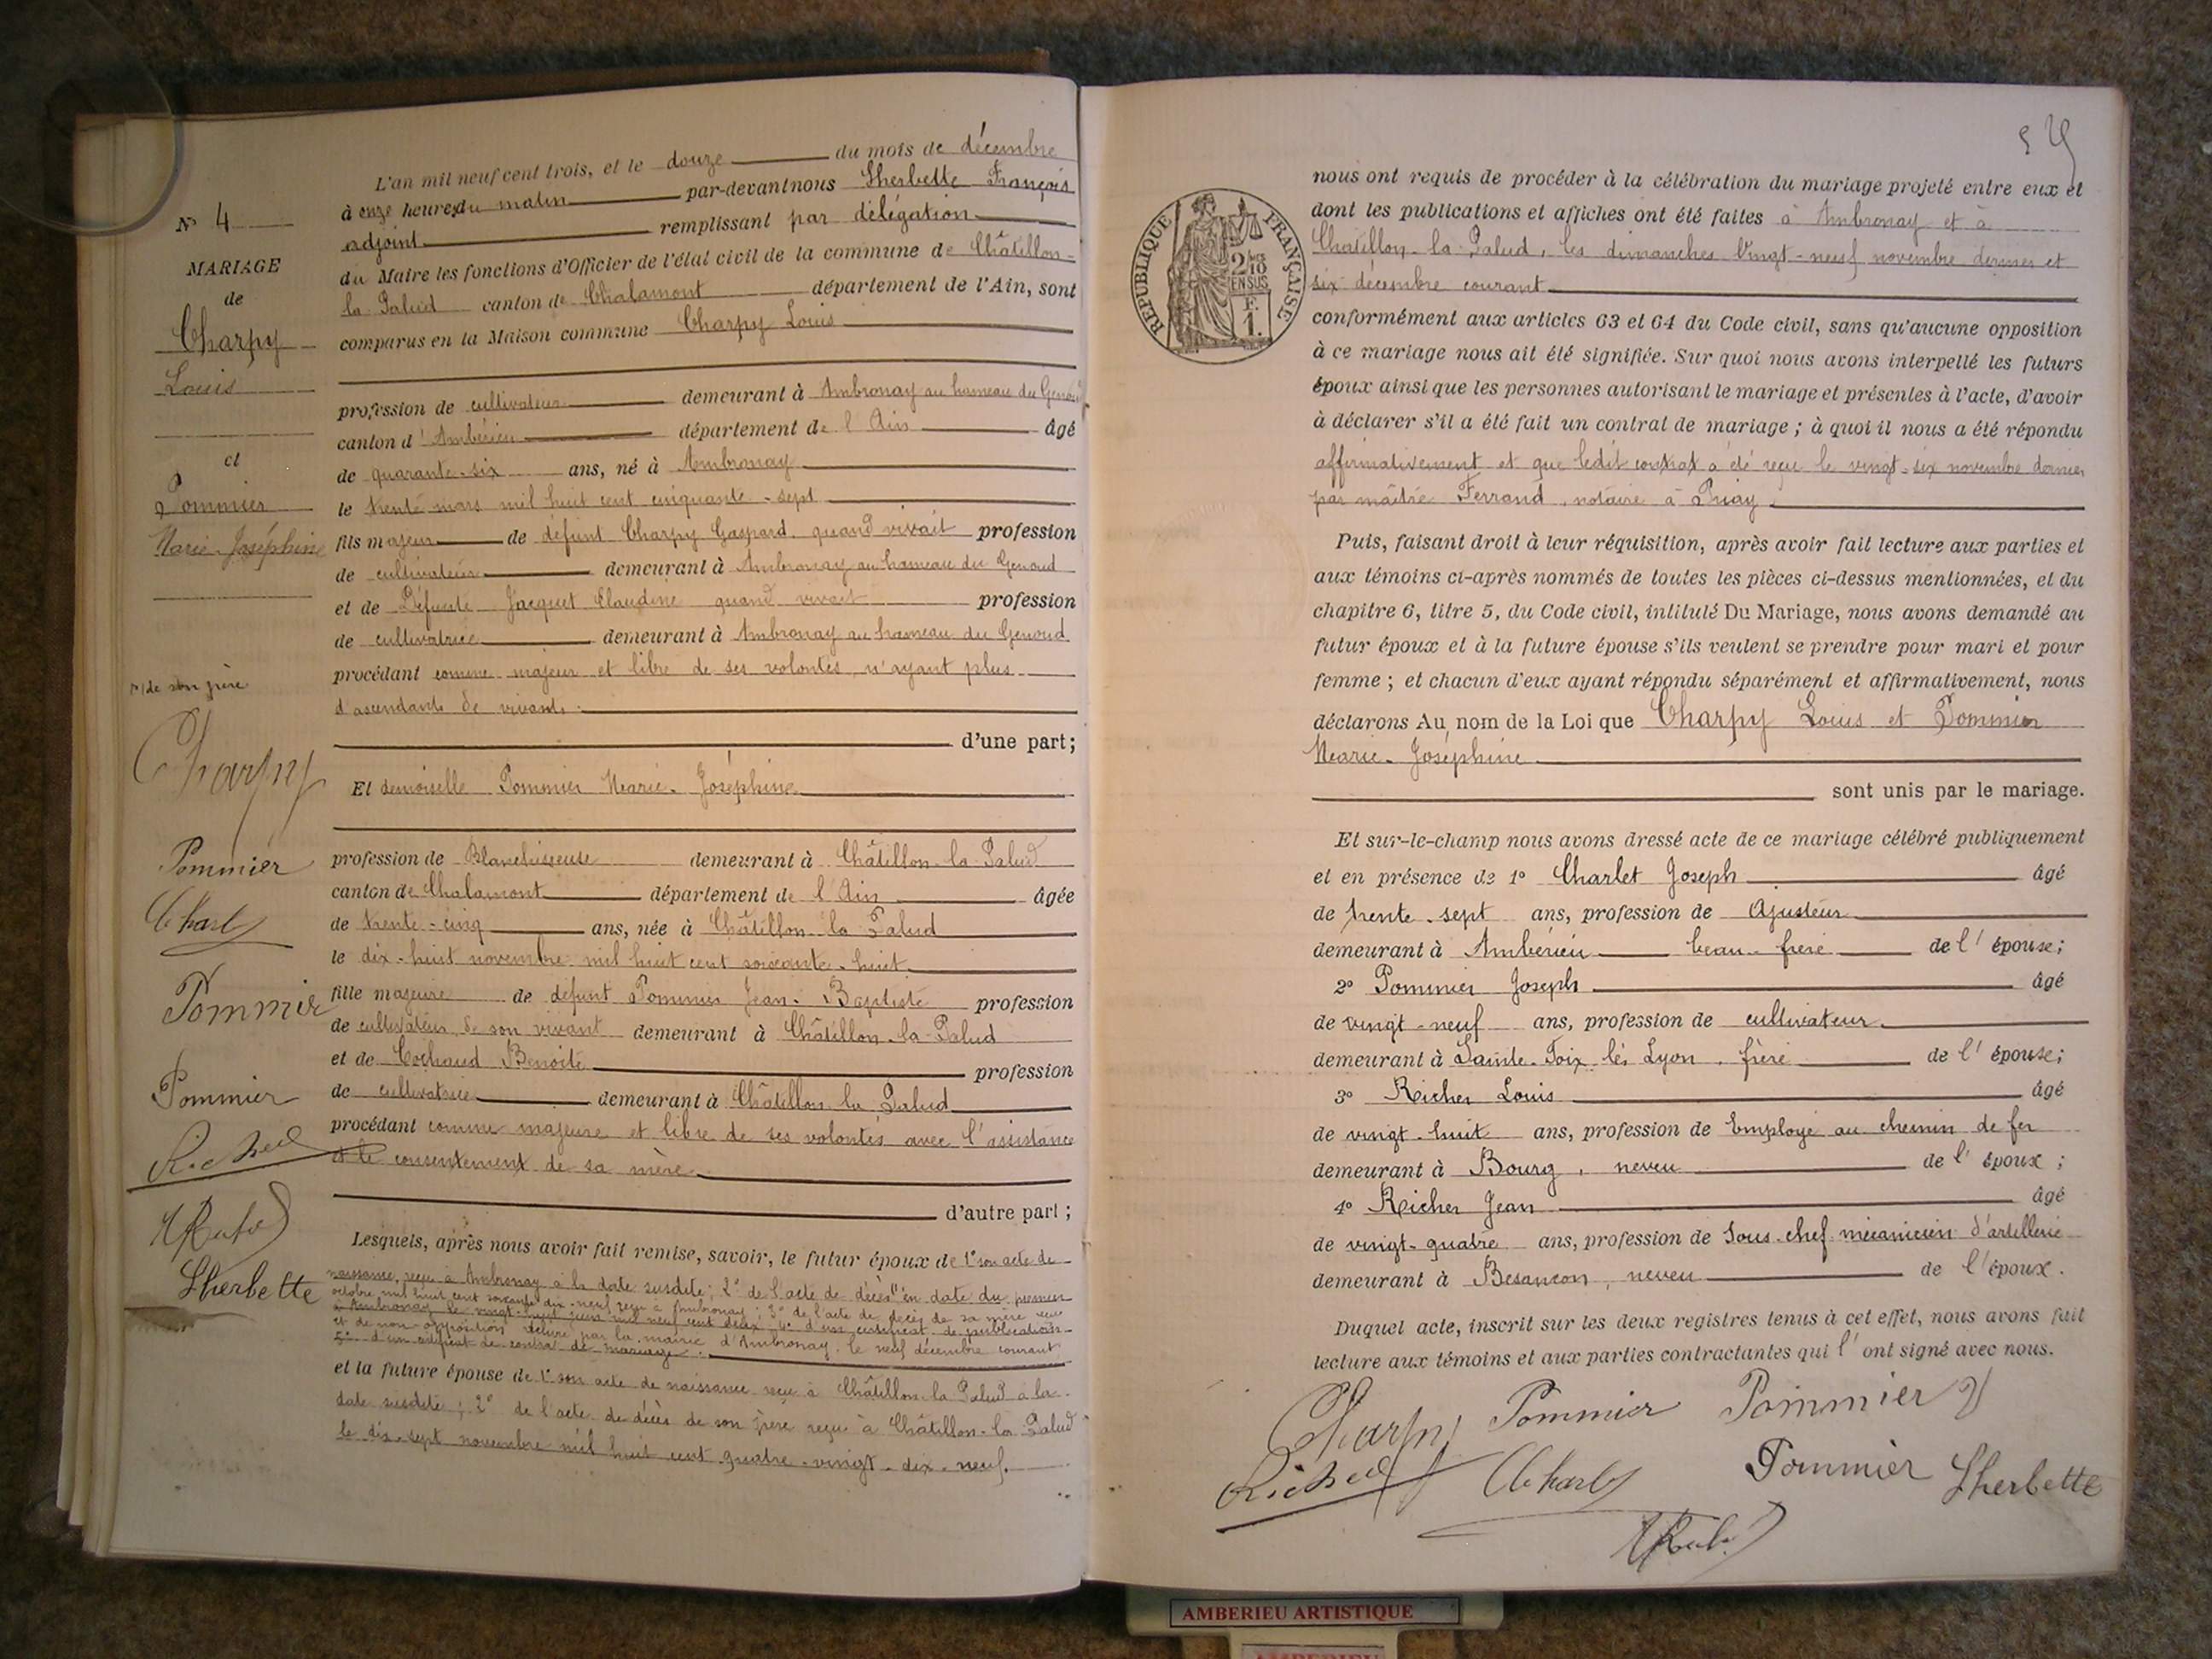 N° 4
MARIAGE
de
Charpy
Louis
et
Pommier
Marie-Joséphine
L'an mil neuf cent trois, et le douze du mois de décembre
à onze heures du matin par-devant nous Lherbette François
adjoint remplissant par délégation
du Maire les fonctions d'Officier de l'état civil de la commune de Châtillon-
la Palud canton de Chalamont département de l'Ain, sont
comparus en la Maison commune Charpy Louis
profession de cultivateur demeurant à Ambronay au hameau du Genoud
canton d'Ambérieu département de l'Ain âgé
de quarante-six ans, né à Ambronay
le trente mars mil huit cent cinquante-sept
fils majeur de défunt Charpy Gaspard quand vivait profession
de cultivateur demeurant à Ambronay au hameau du Genoud
et de Défunte Jacquet Claudine quand vivait profession
de cultivatrice demeurant à Ambronay au hameau du Genoud
procédant comme majeur et libre de ses volontés n'ayant plus
d'ascendants de vivants.
d'une part;
Et demoiselle Pommier Marie-Joséphine
profession de Blanchisseuse demeurant à Châtillon-la-Palud
canton de Chalamont département de l'Ain âgée
de trente-cinq ans, née à Châtillon-la-Palud
le dix-huit novembre mil huit cent soixante-huit
fille majeure de défunt Pommier Jean-Baptiste profession
de cultivateur de son vivant demeurant à Châtillon-la-Palud
et de Cochaud Benoite profession
de cultivatrice demeurant à Châtillon la Palud
procédant comme majeure et libre de ses volontés avec l'assistance
et le consentement de sa mère
d'autre part;
Lesquels, après nous avoir fait remise, savoir, le futur époux de 1° son acte de
naissance, reçu à Ambronay à la date susdite; 2° de l'acte de décès en date du premier
octobre mil huit cent soixante dix-neuf reçu à Ambronay; 3° de l'acte de décès de sa mère reçu
à Ambronay le vingt-huit juin mil neuf cent deux; 4° d'un certificat de publication
et de non-opposition délivré par la mairie d'Ambronay le neuf décembre courant
5° d'un certificat de contrat de mariage.
et la future épouse de 1° son acte de naissance reçu à Châtillon-la-Palud à la
date susdite; 2° de l'acte de décès de son père reçu à Châtillon-la-Palud
le dix-sept novembre mil huit cent quatre-vingt-dix-neuf.
de son père
Charpy
Pommier
Charlet
Pommier
Pommier
Richer
Lherbette
RÉPUBLIQUE FRANÇAISE
2/10
EN SUS
F.
1.
nous ont requis de procéder à la célébration du mariage projeté entre eux et
dont les publications et affiches ont été faites à Ambronay et à
Chatillon-la-Palud, les dimanches Vingt-neuf novembre dernier et
six décembre courant
conformément aux articles 63 et 64 du Code civil, sans qu'aucune opposition
à ce mariage nous ait été signifiée. Sur quoi nous avons interpellé les futurs
époux ainsi que les personnes autorisant le mariage et présentes à l'acte, d'avoir
à déclarer s'il a été fait un contrat de mariage; à quoi il nous a été répondu
affirmativement et que ledit contrat a été reçu le vingt-six novembre dernier
par maître Ferrand, notaire à Priay.
Puis, faisant droit à leur réquisition, après avoir fait lecture aux parties et
aux témoins ci-après nommés de toutes les pièces ci-dessus mentionnées, et du
chapitre 6, titre 5, du Code civil, intitulé Du Mariage, nous avons demandé au
futur époux et à la future épouse s'ils veulent se prendre pour mari et pour
femme; et chacun d'eux ayant répondu séparément et affirmativement, nous
déclarons Au nom de la Loi que Charpy Louis et Pommier
Marie-Joséphine
sont unis par le mariage.
Et sur-le-champ nous avons dressé acte de ce mariage célébré publiquement
et en présence de 1° Charlet Joseph âgé
de trente-sept ans, profession de Ajusteur
demeurant à Ambérieu beau-frère de l'épouse;
2° Pommier Joseph âgé
de vingt-neuf ans, profession de cultivateur
demeurant à Sainte-Foix lès Lyon, frère de l'épouse;
3° Richer Louis âgé
de vingt-huit ans, profession de Employé au chemin de fer
demeurant à Bourg, neveu de l'époux;
4° Richer Jean âgé
de vingt-quatre ans, profession de Sous-chef mécanicien d'artillerie
demeurant à Besançon, neveu de l'époux.
Duquel acte, inscrit sur les deux registres tenus à cet effet, nous avons fait
lecture aux témoins et aux parties contractantes qui l'ont signé avec nous.
Charpy Pommier Pommier
Richer Charlet Pommier Lherbette
AMBERIEU ARTISTIQUE
AMBERIEU